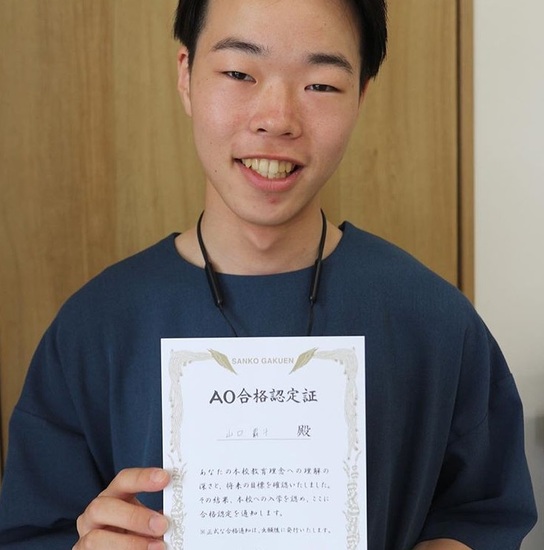 SANKO GAKUEN
AO合格認定証
山口 殿
あなたの本校教育理念への理解の
深さと、将来の目標を確認いたしました。
その結果、本校への入学を認め、ここに
合格認定を通知します。
※正式な合格通知は、出願後に発行いたします。